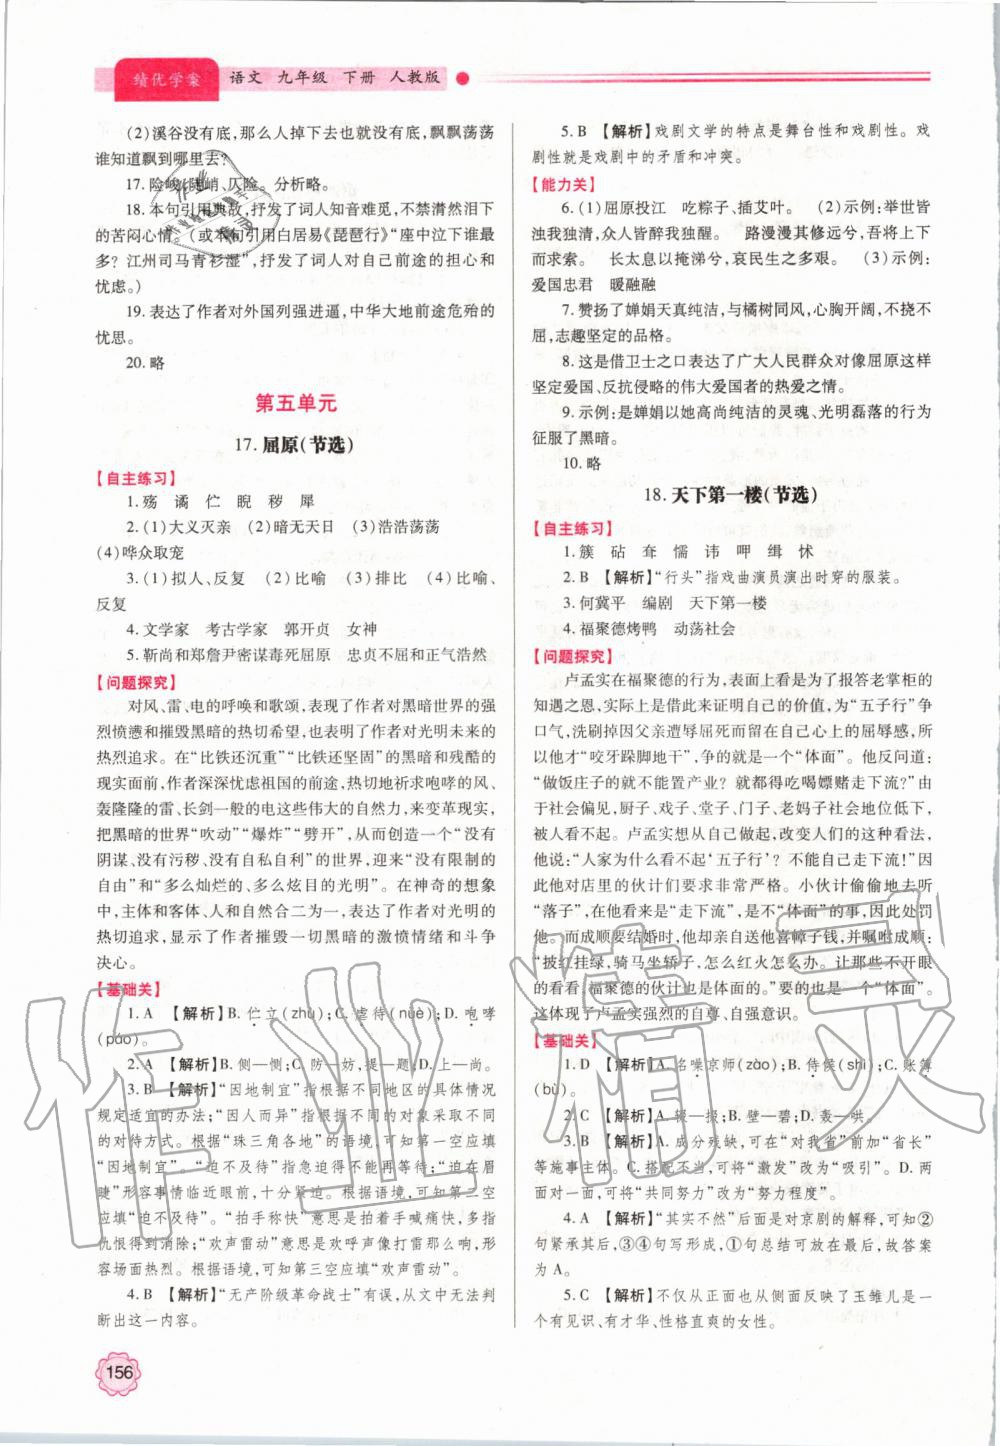 绩优学案 语文 九年级 下册 人教版
(2)溪谷没有底,那么人掉下去也就没有底,飘飘荡荡
谁知道飘到哪里去?
17.险峻、陡峭、仄险。分析略。
18.本句引用典故,抒发了词人知音难觅,不禁潸然泪下
的苦闷心情。(或本句引用白居易《琵琶行》“座中泣下谁最
多?江州司马青衫湿”,抒发了词人对自己前途的担心和
忧虑。)
19.表达了作者对外国列强进逼,中华大地前途危殆的
忧思。
20.略
第五单元
17.屈原(节选)
【自主练习】
1.殇 谲 伫 睨 秽 犀
2.(1)大义灭亲 (2)暗无天日 (3)浩浩荡荡
(4)哗众取宠
3.(1)拟人、反复 (2)比喻 (3)排比 (4)比喻、
反复
4.文学家 考古学家 郭开贞 女神
5.靳尚和郑詹尹密谋毒死屈原 忠贞不屈和正气浩然
【问题探究】
对风、雷、电的呼唤和歌颂,表现了作者对黑暗世界的强
烈愤懑和摧毁黑暗的热切希望,也表现了作者对光明未来的
热烈追求。在“比铁还沉重”“比铁还坚固”的黑暗和残酷的
现实面前,作者深深忧虑祖国的前途,热切地祈求咆哮的风、
轰隆隆的雷、长剑一般的电这些伟大的自然力,来变革现实,
把黑暗的世界“吹动”“爆炸”“劈开”,从而创造一个“没有
阴谋、没有污秽、没有自私自利”的世界,迎来“没有限制的
自由”和“多么灿烂的、多么炫目的光明”。在神奇的想象
中,主体和客体、人和自然合二为一,表达了作者对光明的
热切追求,显示了作者摧毁一切黑暗的激愤情绪和斗争
决心。
【基础关】
1.A 【解析】B.伫立(zhù);C.虐待(nüè);D.咆哮
(páo)。
2.A 【解析】B.侧—恻;C.防—妨,提—题;D.上—尚。
3.B 【解析】“因地制宜”指根据不同地区的具体情况
规定适宜的办法;“因人而异”指根据不同的对象采取不同
的对待方式。根据“珠三角各地”的语境,第一空应填
“因地制宜”。“迫不及待”指急迫得不能再等待;“迫在眉
睫”形容事情临近眼前,十分紧迫。根据语境,可知第二空
应填“迫不及待”。“拍手称快”意思是拍着手喊痛快,多指
仇恨得到消除;“欢声雷动”意思是欢呼声像打雷那么响,形
容场面热烈。根据语境,可知第三空应填“欢声雷动”。
4.B 【解析】“无产阶级革命战士”有误,从文中无法判
断出这一内容。
5.B 【解析】戏剧文学的特点是舞台性和戏剧性。戏
剧性就是戏剧中的矛盾和冲突。
【能力关】
6.(1)屈原投江 吃粽子、插艾叶。 (2)示例:举世皆
浊我独清,众人皆醉我独醒。 路漫漫其修远兮,吾将上
下而求索。 长太息以掩涕兮,哀民生之多艰。 (3)示例:
爱国忠君 暖融融
7.赞扬了婵娟天真纯洁,与橘树同风,心胸开阔,不挠不
屈,志趣坚定的品格。
8.这是借卫士之口表达了广大人民群众对像屈原这样
坚定爱国、反抗侵略的伟大爱国者的热爱之情。
9.示例:是婵娟以她高尚纯洁的灵魂、光明磊落的行为
征服了黑暗。
10.略
18.天下第一楼(节选)
【自主练习】
1.簇 砧 耷 懦 讳 呷 缉 怵
2.B 【解析】“行头”指戏曲演员演出时穿的服装。
3.何冀平 编剧 天下第一楼
4.福聚德烤鸭 动荡社会
【问题探究】
卢孟实在福聚德的行为,表面上看是为了报答老掌柜的
知遇之恩,实际上是借此来证明自己的价值,为“五子行”争
口气,洗刷掉因父亲遭辱屈死而留在自己心上的屈辱感,所
以他才“咬牙跺脚地干”,争的就是一个“体面”。他反问道:
“做饭庄子的就不能置产业?就都得吃喝嫖赌走下流?”由
于社会偏见,厨子、戏子、堂子、门子、老妈子社会地位低下,
被人看不起。卢孟实想从自己做起,改变人们的这种看法,
他说:“人家为什么看不起‘五子行’?不能自己走下流!”因
此他对店里的伙计们要求非常严格。小伙计偷偷地去听
“落子”,在他看来是“走下流”,是不“体面”的事,因此处罚
他。而成顺要结婚时,他却亲自送他喜幛子钱,并嘱咐成顺:
“披红挂绿,骑马坐轿子,怎么红火怎么办。让那些不开眼
的看看,福聚德的伙计也是体面的。”要的也是一个“体面”。
这体现了卢孟实强烈的自尊、自强意识。
【基础关】
1.D 【解析】A.名噪京师(zào);B.侍候(shì);C.账簿
(bù)。
2.C 【解析】A.辍—掇;B.壁—碧;D.轰—哄。
3.B 【解析】A.成分残缺,可在“对我省”前加“省长”
等施事主体。C.搭配不当,可将“激发”改为“吸引”。D.两
面对一面,可将“共同努力”改为“努力程度”。
4.A 【解析】“其实不然”后面是对京剧的解释,可知②
句紧接其后,③④句写形成,①句总结可放最后,故答案
为A。
5.C 【解析】不仅从正面也从侧面反映了玉雏儿是一
个有见识、有才华、性格直爽的女性。
156